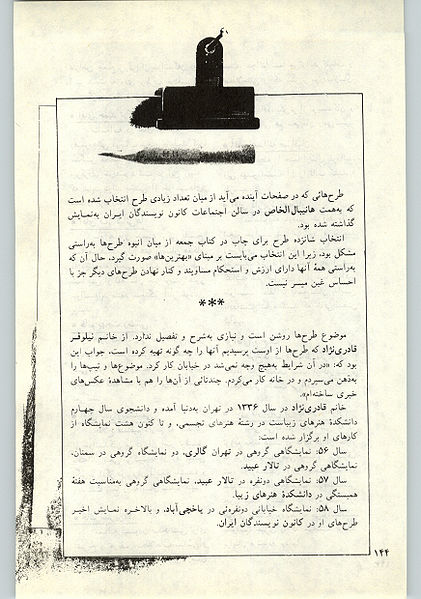 طرح‌هائی که در صفحات آینده می‌آید از میان تعداد زیادی طرح انتخاب شده است
که به‌همت هانیبال‌الخاص در سالن اجتماعات کانون نویسندگان ایران به‌نمایش
گذاشته شده بود.
انتخاب شانزده طرح برای چاپ در کتاب جمعه از میان انبوه طرح‌ها به‌راستی
مشکل بود، زیرا این انتخاب می‌بایست بر مبنای «بهترین‌ها» صورت گیرد، حال آن که
به‌راستی همهٔ آنها دارای ارزش و استحکام مساویند و کنار نهادن طرح‌های دیگر جز با
احساس غبن میسر نیست.
***
موضوع طرح‌ها روشن است و نیازی به‌شرح و تفصیل ندارد. از خانم نیلوفر
قادری‌نژاد که طرح‌ها از اوست پرسیدیم آنها را چه گونه تهیه کرده است، جواب این
بود که: «در آن شرایط به‌هیچ وجه نمی‌شد در خیابان کار کرد. موضوع‌ها و تیپ‌ها را
به‌ذهن می‌سپردم و در خانه کار می‌کردم. چندتائی از آن‌ها را هم با مشاهدهٔ عکس‌های
خبری ساخته‌ام».
خانم قادری‌نژاد در سال ۱۳۳۶ در تهران به‌دنیا آمده و دانشجوی سال چهارم
دانشکدهٔ هنرهای زیباست در رشتهٔ هنرهای تجسمی، و تا کنون هشت نمایشگاه از
کارهای او برگزار شده است:
سال ۵۶: نمایشگاهی گروهی در تهران گالری، دو نمایشگاه گروهی در سمنان،
نمایشگاهی گروهی در تالار عبید.
سال ۵۷: نمایشگاهی دونفره در تالار عبید، نمایشگاهی گروهی به‌مناسبت هفتهٔ
همبستگی در دانشکدهٔ هنرهای زیبا.
سال ۵۸: نمایشگاه خیابانی دونفره‌ئی در یاخچی‌آباد، و بالاخره نمایش اخیر
طرح‌های او در کانون نویسندگان ایران.
۱۴۴